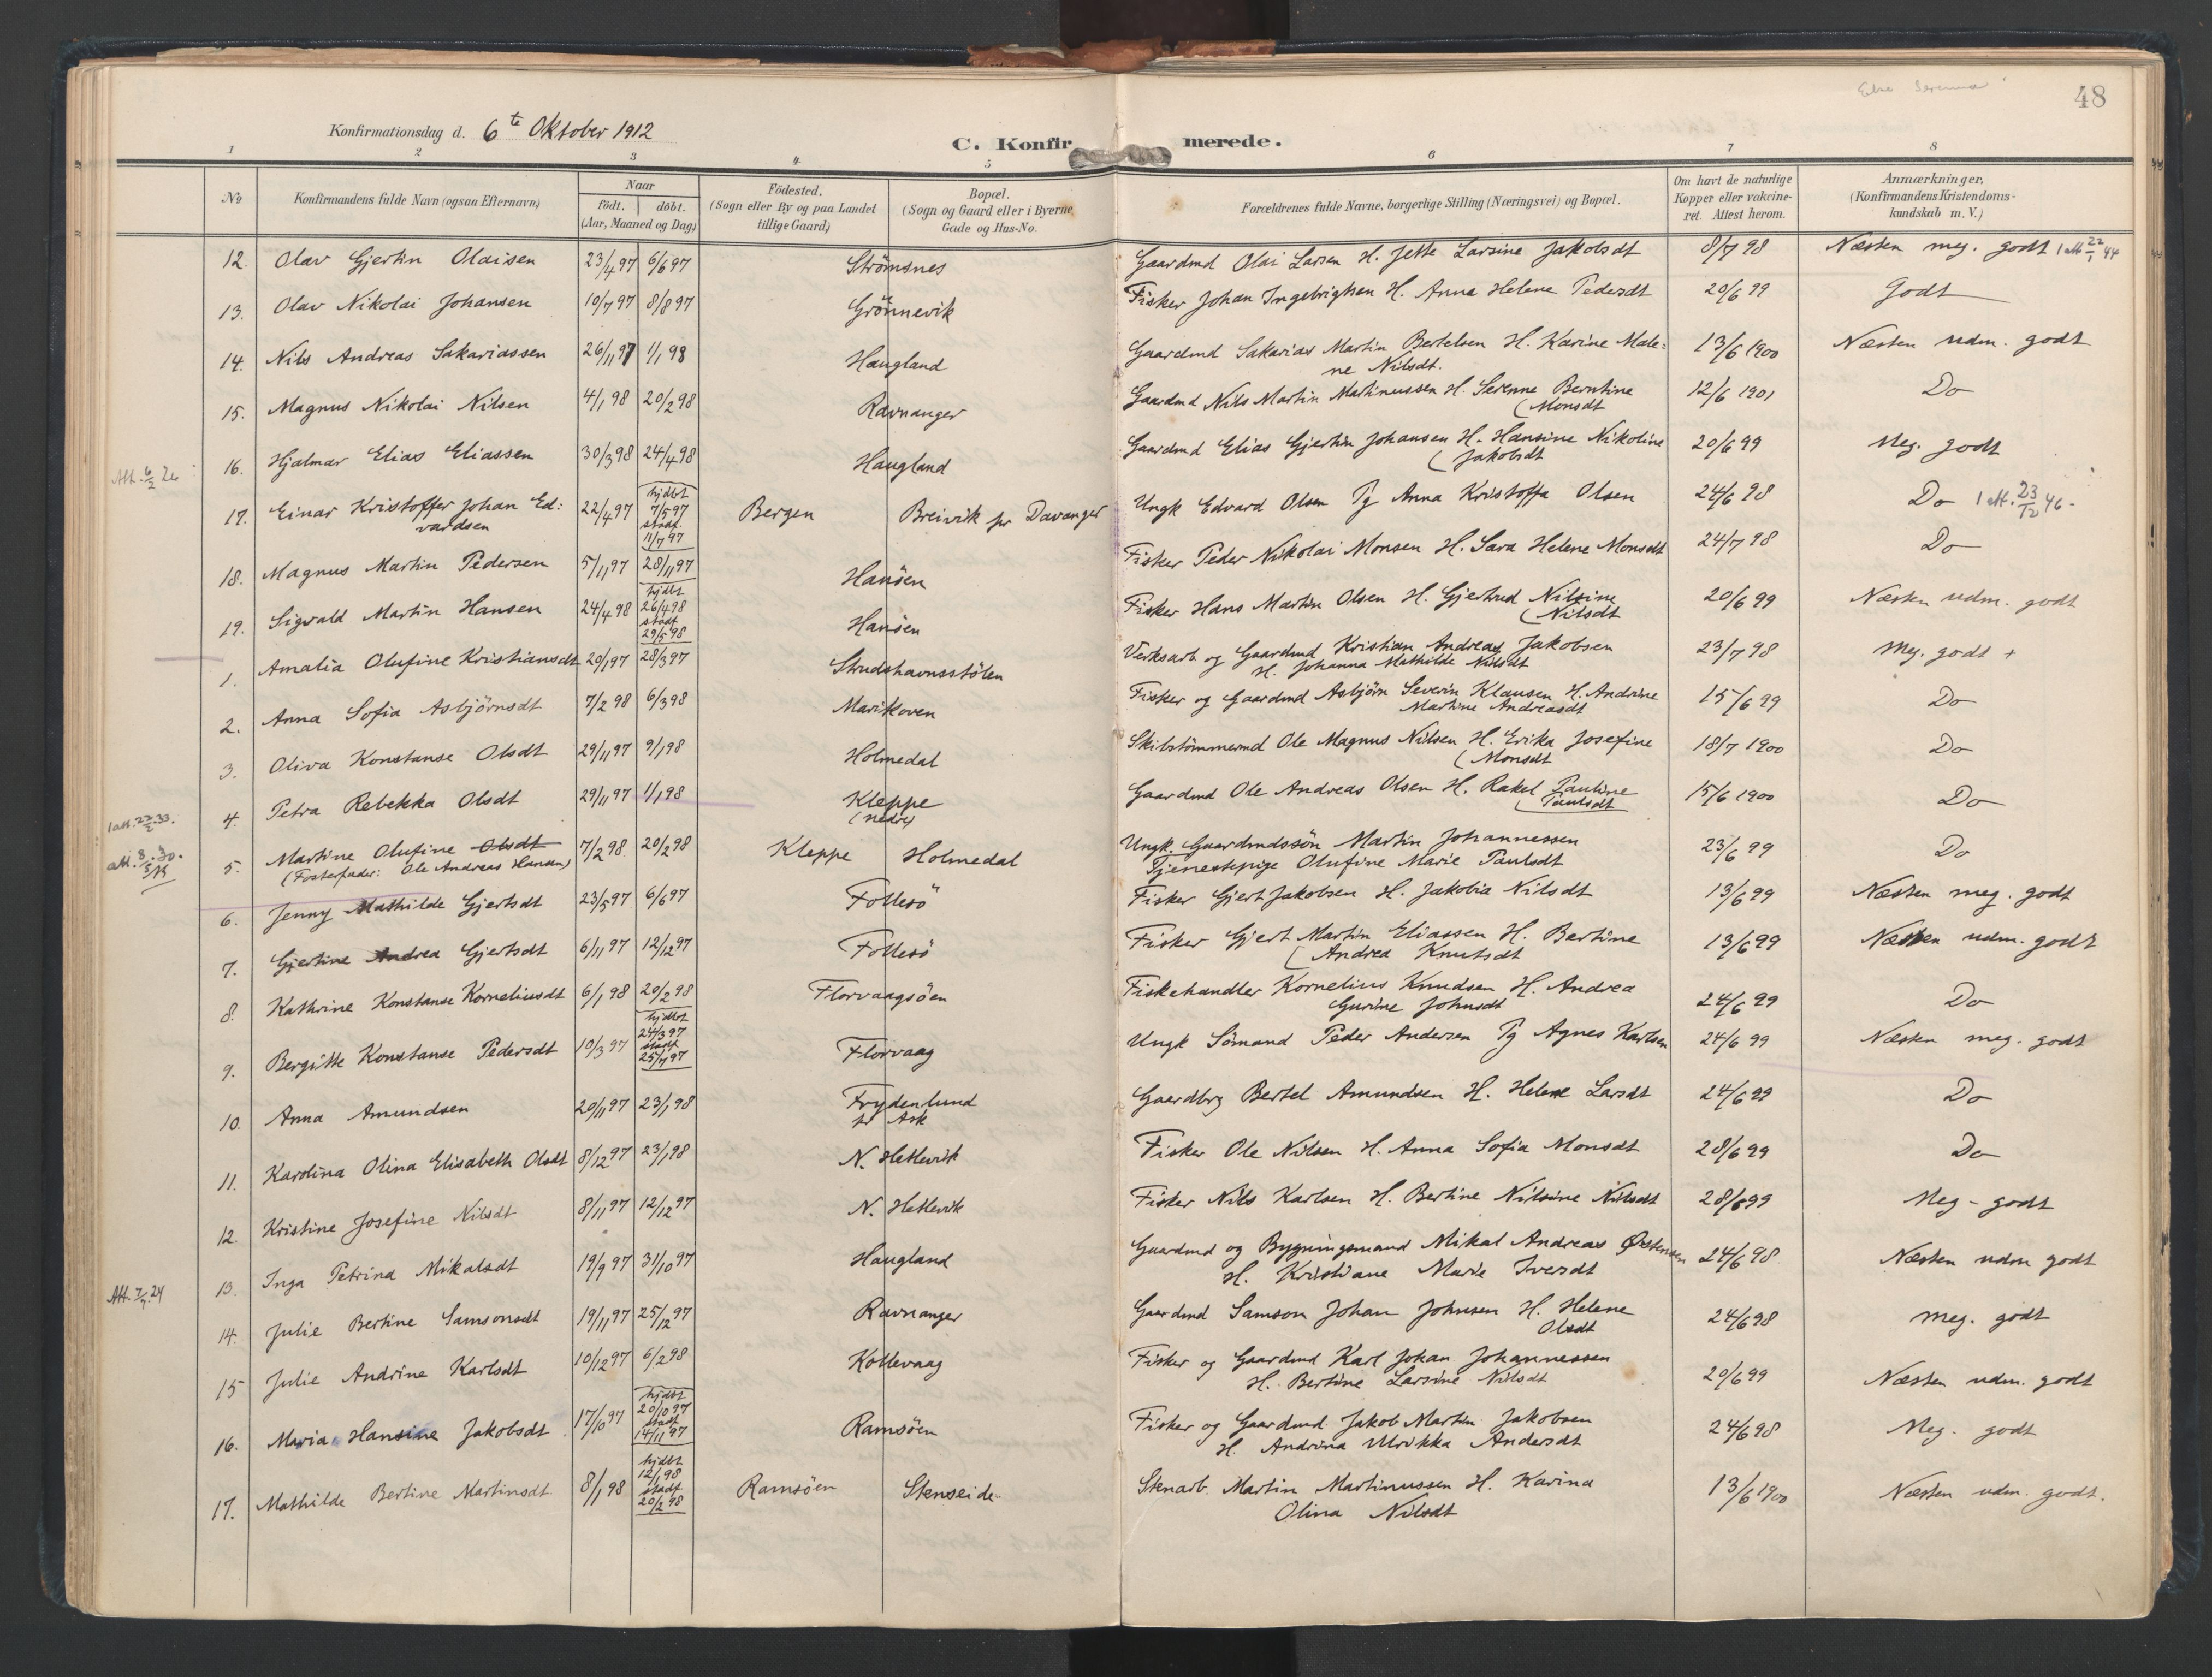 48
Konfirmationsdag d. 6te Oktober 1912
C. Konfirmerede.
1 2 3 4 5 6 7 8
No
Konfirmandens fulde Navn (ogsaa Efternavn)
Naar
födt. döbt.
(Aar, Maaned og Dag)
Födested.
(Sogn eller By og paa Landet
tillige Gaard)
Bopæl.
(Sogn og Gaard eller i Byerne
Gade og Hus-No.
Forældrenes fulde Navne, borgerlige Stilling (Næringsvei) og Bopæl.
Om havt de naturlige
Kopper eller vakcine-
ret. Attest herom.
Anmærkninger.
(Konfirmandens Kristendoms-
kundskab m. V.)
12. Olav Gjertin Olaisen 23/4 97 6/6 97 Strömsnes Gaardmd Olai Larsen H. Jette Larsine Jakobsdt 8/7 98 Næsten meg. godt 1 att 22/1 44
13. Olav Nikolai Johansen 10/7 97 8/8 97 Grönnevik Fisker Johan Ingebrigtsen H. Anna Helene Pedersdt 20/6 99 Godt
14. Nils Andreas Sakariassen 26/11 97 1/1 98 Haugland Gaardmd Sakarias Martin Bertelsen H. Karine Male=
ne Nilsdt. 13/6 1900 Næsten udm. godt
15. Magnus Nikolai Nilsen 4/1 98 20/2 98 Ravnanger Gaardmd Nils Martin Martinussen H. Serenne Berntine
(Monsdt 12/6 1901 Do
16. Hjalmar Elias Eliassen 30/3 98 24/4 98 Haugland Gaardmd Elias Gjertin Johansen H. Hansine Nikoline
(Jakobsdt 20/6 99 Meg. godt
Att. 6/2 26
17. Einar Kristoffer Johan Ed:
vardsen 22/4 97 hjdbt
7/5 97
stadf.
11/7 97 Bergen Breivik pr Davanger Ungk Edvard Olsen Pg Anna Kristoffa Olsen 24/6 98 Do 1 att. 23/12 46.
18. Magnus Martin Pedersen 5/11 97 28/11 97 Hanöen Fisker Peder Nikolai Monsen H. Sara Helene Monsdt 24/7 98 Do
19. Sigvald Martin Hansen 24/4 98 hjdbt
26/4 98
stadf
29/5 98 Hanöen Fisker Hans Martin Olsen H. Gjertrud Nilsine
(Nilsdt 20/6 99 Næsten udm. godt
1. Amalia Olufine Kristiansdt 20/1 97 28/3 97 Strudshavnsstölen Verksarb og Gaardmd Kristian Andreas Jakobsen
H. Johanna Mathilde Nilsdt 23/7 98 Meg. godt +
2. Anna Sofia Asbjörnsdt 7/2 98 6/3 98 Marikoven Fisker og Gaardmd Asbjörn Severin Klausen H. Andrine
Martine Andreasdt 15/6 99 Do
3. Oliva Konstanse Olsdt 29/11 97 9/1 98 Holmedal Skibstömmermd Ole Magnus Nilsen H. Erika Josefine
(Monsdt 18/7 1900 Do
4. Petra Rebekka Olsdt 29/11 97 1/1 98 Kleppe
(nedre) Gaardmd Ole Andreas Olsen H. Rakel Pauline
(Paulsdt 15/6 1900 Do
5. Martine Olufine Olsdt
(Fosterfader: Ole Andreas Hansen) 7/2 98 20/2 98 Kleppe Holmedal Ungk. Gaardmdssön Martin Johannessen
Tjenestepige Olufine Marie Paulsdt 23/6 99 Do
6. Jenny Mathilde Gjertsdt 23/5 97 6/6 97 Follesö Fisker Gjert Jakobsen H. Jakobia Nilsdt 13/6 99 Næsten meg. godt
7. Gjertine Andrea Gjertsdt 6/11 97 12/12 97 Follesö Fisker Gjert Martin Eliassen H. Bertine
(Andrea Knutsdt 13/6 99 Næsten udm. godt
8. Kathrine Konstanse Korneliusdt 6/1 98 20/2 98 Florvaagsöen Fiskehandler Kornelius Knudsen H. Andrea
Gurine Johnsdt 24/6 99 Do
9. Bergitte Konstanse Pedersdt 10/3 97 hjdbt
24/3 97
stadf
25/7 97 Florvaag Ungk Sömand Peder Andersen Pg Agnes Karlsen 24/6 99 Næsten meg. godt
10. Anna Amundsen 20/11 97 23/1 98 Frydenlund
pr Ask Gaardbrg Bertel Amundsen H. Helene Larsdt 24/6 99 Do
11. Karolina Olina Elisabeth Olsdt 8/12 97 23/1 98 N. Hetlevik Fisker Ole Nilsen H. Anna Sofia Monsdt 28/6 99 Do
12. Kristine Josefine Nilsdt 8/11 97 12/12 97 N. Hetlevik Fisker Nils Karlsen H. Bertine Nilsine Nilsdt 28/6 99 Meg - godt
13. Inga Petrina Mikalsdt 19/9 97 31/10 97 Haugland Gaardmd og Bygningsmand Mikal Andreas Østensen
H. Kristiane Marie Iversdt 24/6 98 Næsten udm godt
14. Julie Bertine Samsonsdt 19/11 97 25/12 97 Ravnanger Gaardmd Samson Johan Johnsen H. Helene
Olsdt 24/6 98 Meg. godt
15 Julie Andrine Karlsdt 10/12 97 6/2 98 Kollevaag Fisker og Gaardmd Karl Johan Johannessen
H. Bertine Larsine Nilsdt 20/6 99 Næsten udm. godt
16. Maria Hansine Jakobsdt 17/10 97 hjdbt
20/10 97
stadf
14/11 97 Ramsöen Fisker og Gaardmd Jakob Martin Jakobsen
H. Andrina Ulrikka Andersdt 24/6 98 Meg. godt
17. Mathilde Bertine Martinsdt. 8/1 98 hjdbt
12/1 98
stadf
20/2 98 Ramsöen Stenseide Stenarb. Martin Martinussen H. Karina
Olina Nilsdt 13/6 1900 Næsten udm. godt.